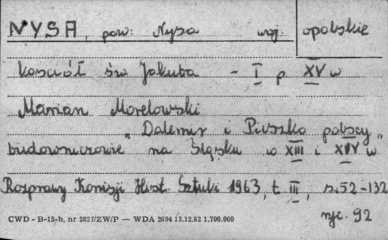 NYSA, pow. Nysa woj. opolskie
Kościół św Jakuba - I p XV w
Marian Morelowski
"Dalemir i Pieszko polscy"
budowniczowie na Śląsku w XIII i XIV w
Rozprawy Komisji Hist. Sztuki 1963, t. III, s. 52-132
CWD - B-15-b, nr 2827/ZW/P — WDA 2694 13.12.62 1.700.000
ryc. 92